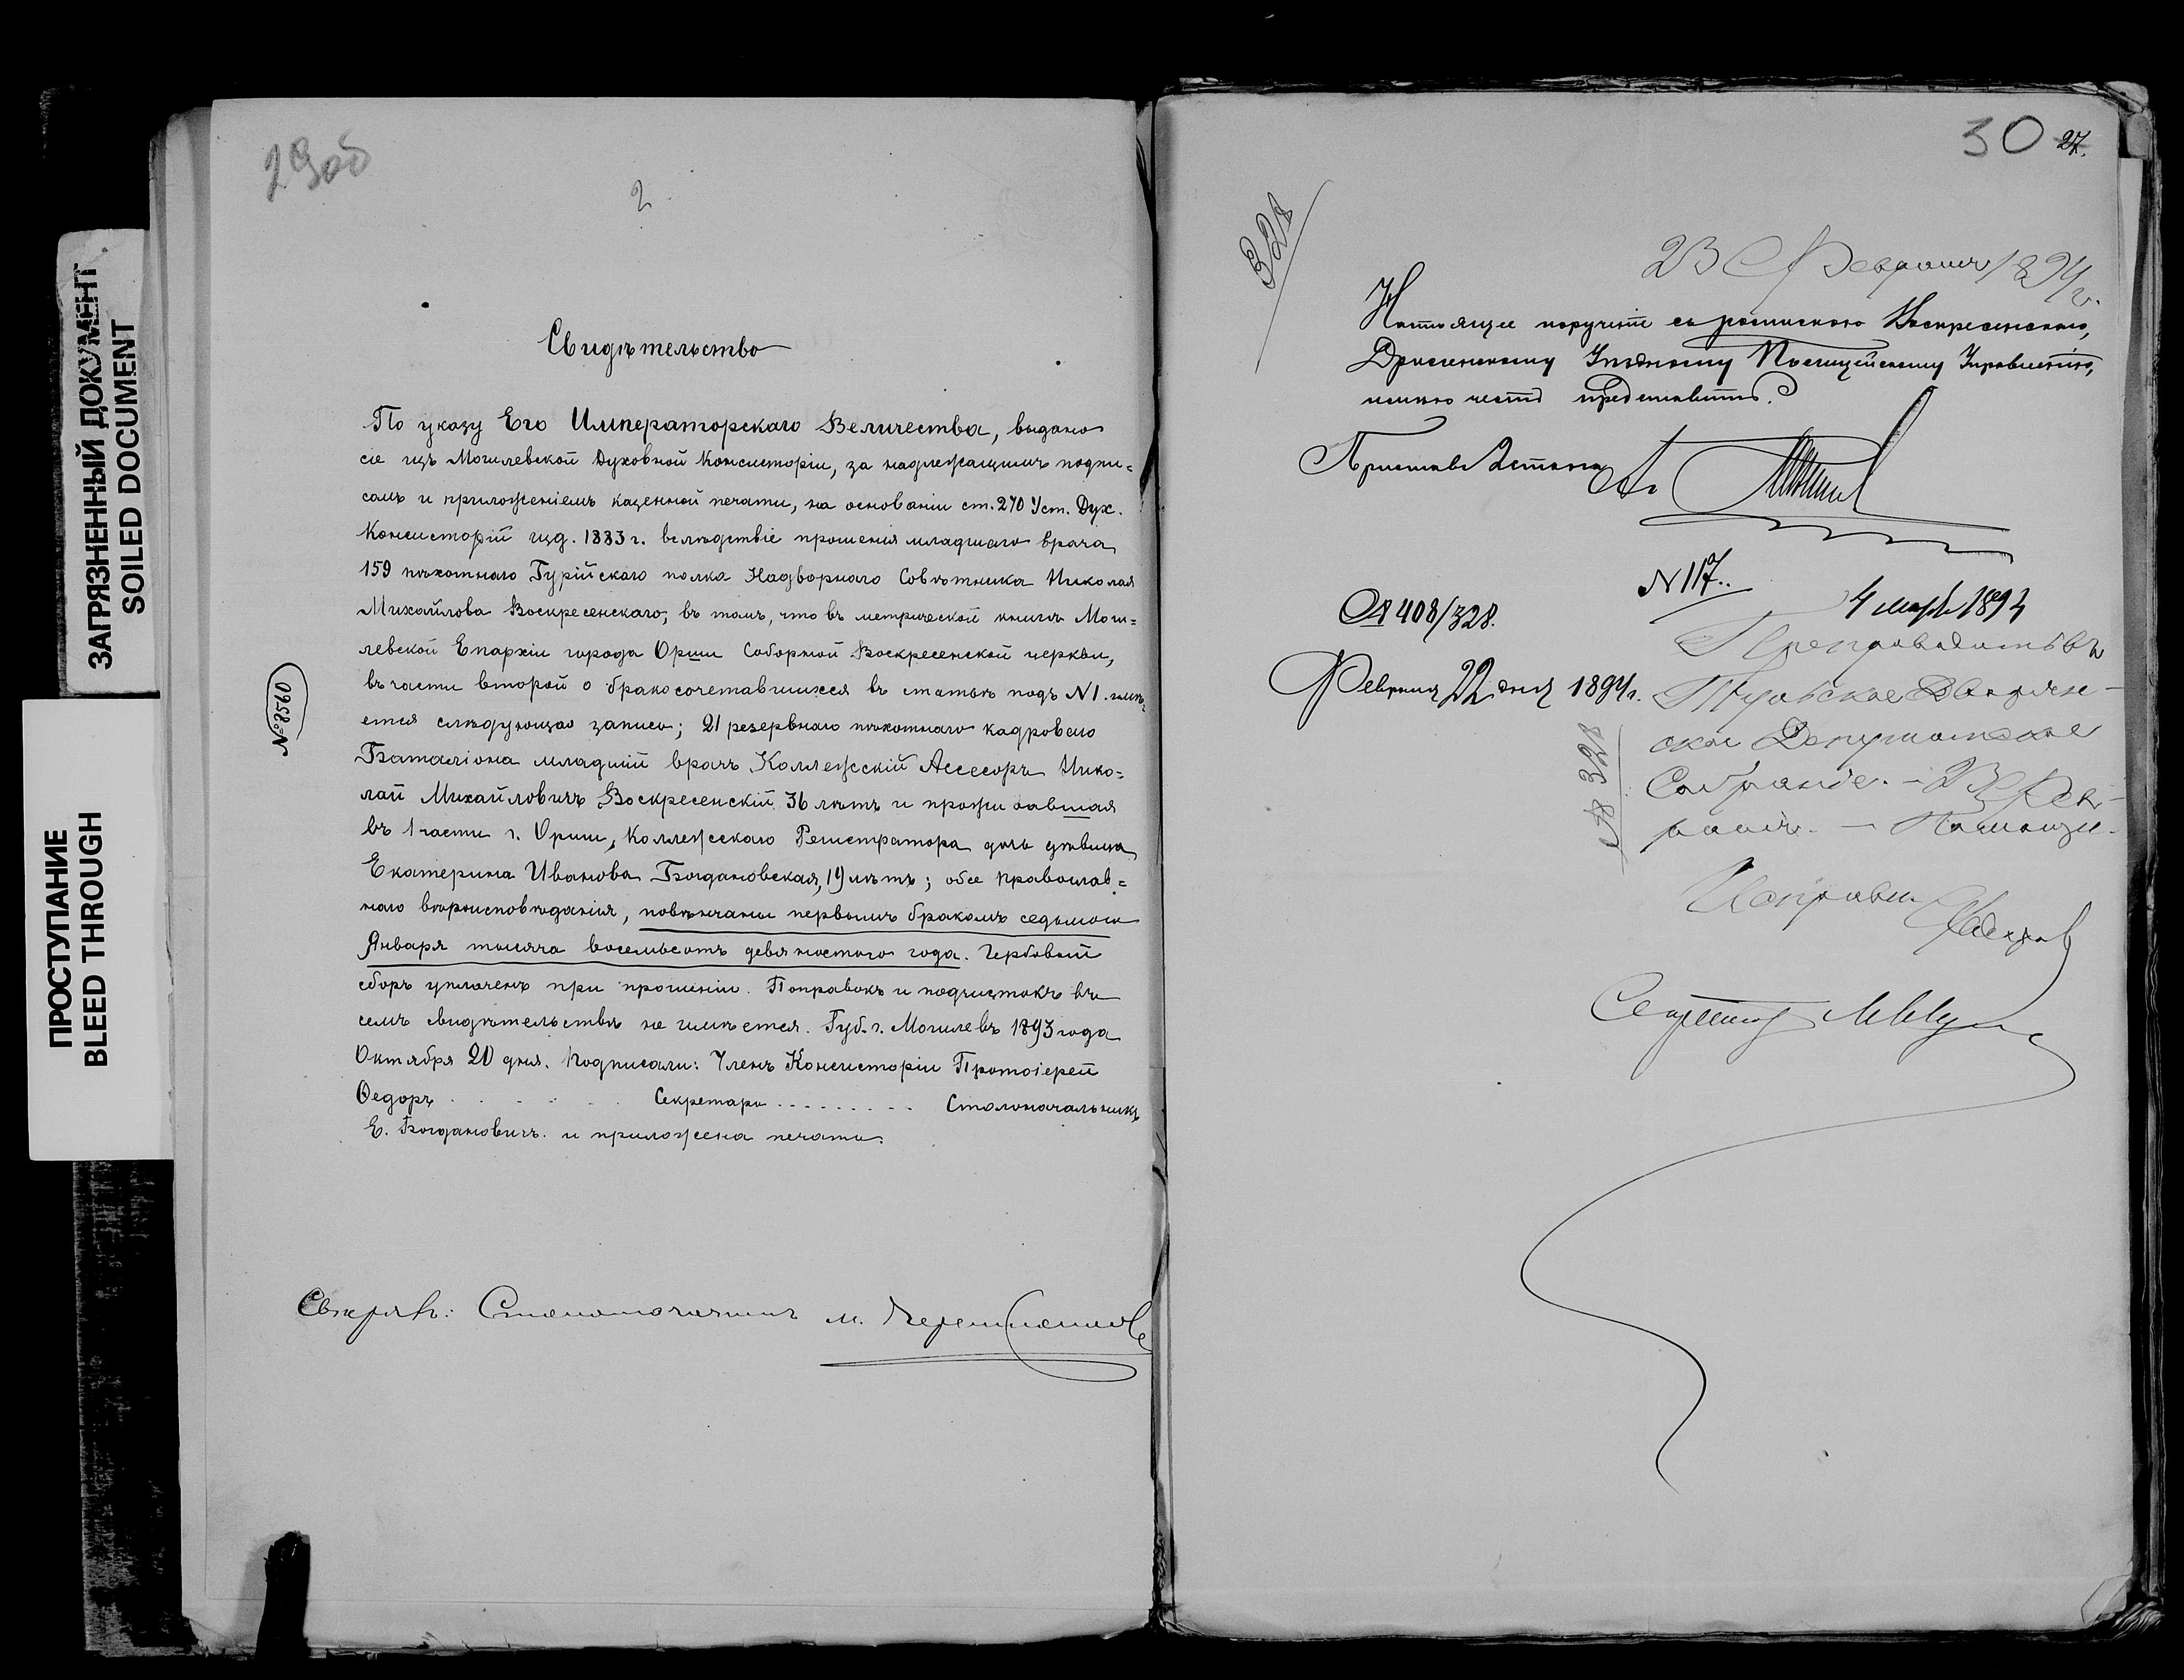 ЗАГРЯЗНЕННЫЙ ДОКУМЕНТ
SOILED DOCUMENT
ПРОСТУПАНИЕ
BLEED THROUGH
29об
2
Свидѣтельство
По указу Его Императорскаго Величества, выдано
сіе изъ Могилевской Духовной Консисторіи, за надлежащимъ подпи=
сомъ и приложеніемъ казенной печати, на основаніи ст. 270 Уст. Дух.
Консисторій изд. 1883 г. вслѣдствіе прошенія младшаго врача
159 пѣхотнаго Гурійскаго полка Надворнаго Совѣтника Николая
Михайлова Воскресенскаго, въ томъ, что въ метрической книгѣ Моги=
левской Епархіи города Орши Соборной Воскресенской церкви,
въ части второй о бракосочетавшихся въ статьѣ подъ N 1. имѣ=
ется слѣдующая запись; 21 резервнаго пѣхотнаго кадроваго
№ 8560
Баталіона младшій врачъ Коллежскій Ассесоръ Нико=
лай Михайловичъ Воскресенскій 36 лѣтъ и прожи вавшая
въ 1 части г. Орши, Коллежскаго Регистратора дочь дѣвица
Екатерина Иванова Богдановская, 19 лѣтъ; обое православ=
наго вѣроисповѣданія, повѣнчаны первымъ бракомъ седьмого
Января тысяча восемьсотъ девяностого года. Гербовый
сборъ уплоченъ при прошеніи. Поправокъ и подчистокъ въ
семъ свидѣтельствѣ не имѣется. Губ. г. Могилевъ 1893 года
Октября 20 дня. Подписали: Членъ Консисторіи Протоіерей
Ѳедоръ . . . . . Секретарь . . . . . . . . . Столоначальникъ
Е. Богдановичъ. и приложена печать.
Свѣрялъ: Столоначальникъ М.
30 27.
328
23 Февраля 1894 г.
Настоящее порученіе съ роспискою Воскресенскаго,
Дрисенскому Уѣздному Полицейскому Управленію,
имѣю честь представить.
Приставъ 2 стана
N 117..
4 марта 1894
№ 408/328.
Препроводить въ
Февраля 22 дня 1894 г.
Тульское Дворян-
ское Депутатское
№ 328
Собраніе. – 23 Фев-
раля. –
Исправникъ
Секретарь